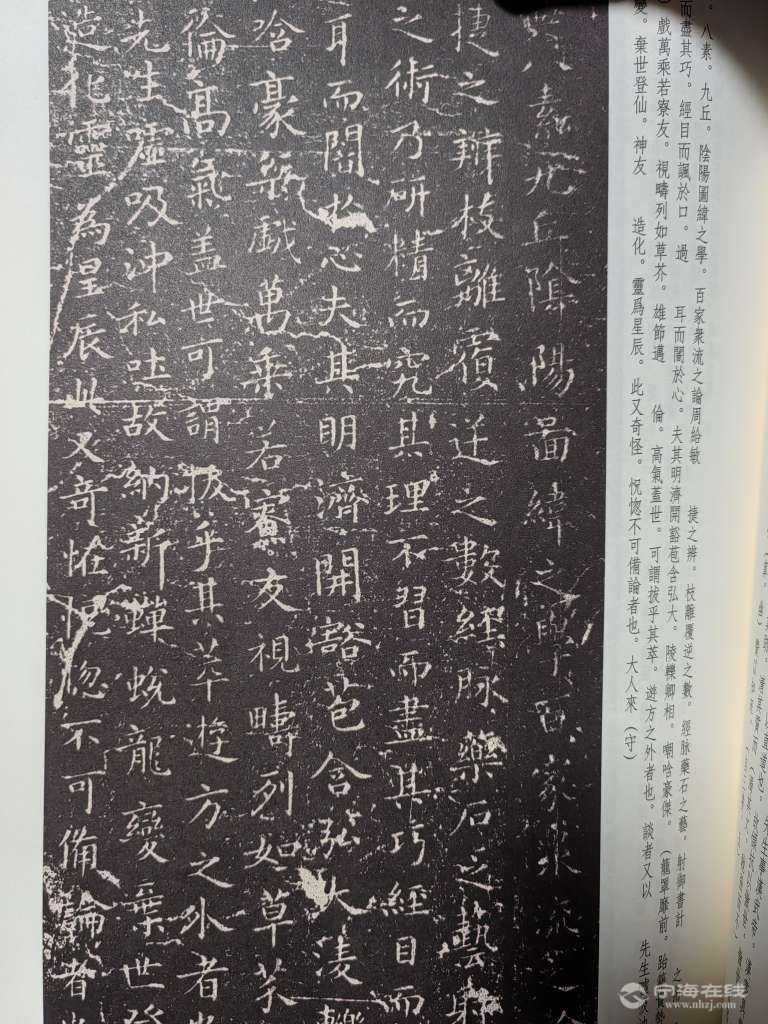 八素。九丘。陰陽圖緯之學。百家衆流之論周給敏 捷之辨。枝離覆逆之數。經脉藥石之藝。射御書計 之
而盡其巧。經目而諷於口。過 耳而闇於心。夫其明濟開豁苞含弘大。陵轢卿相。嘲哈豪傑。(籠罩靡前。跆籍
戲萬乘若寮友。視疇列如草芥。雄節邁 倫。高氣蓋世。可謂拔乎其萃。遊方之外者也。談者又以 先生
變。棄世登仙。神友 造化。靈爲星辰。此又奇怪。恍惚不可備論者也。大人來(守)
八素九丘陰陽圖緯之學百家衆流之論
捷之辯枝離覆逆之數經脉藥石之藝射
之術乃研精而究其理不習而盡其巧經目而
耳而闇於心夫其明濟開豁苞含弘大淩轢
哈豪桀戲萬乘若寮友視疇列如草芥
倫高氣蓋世可謂拔乎其萃遊方之外者也
先生噓吸沖和吐故納新蟬蛻龍變棄世登
造化靈為星辰此又奇怪恍惚不可備論者也
宁海在线
www.nhzj.com